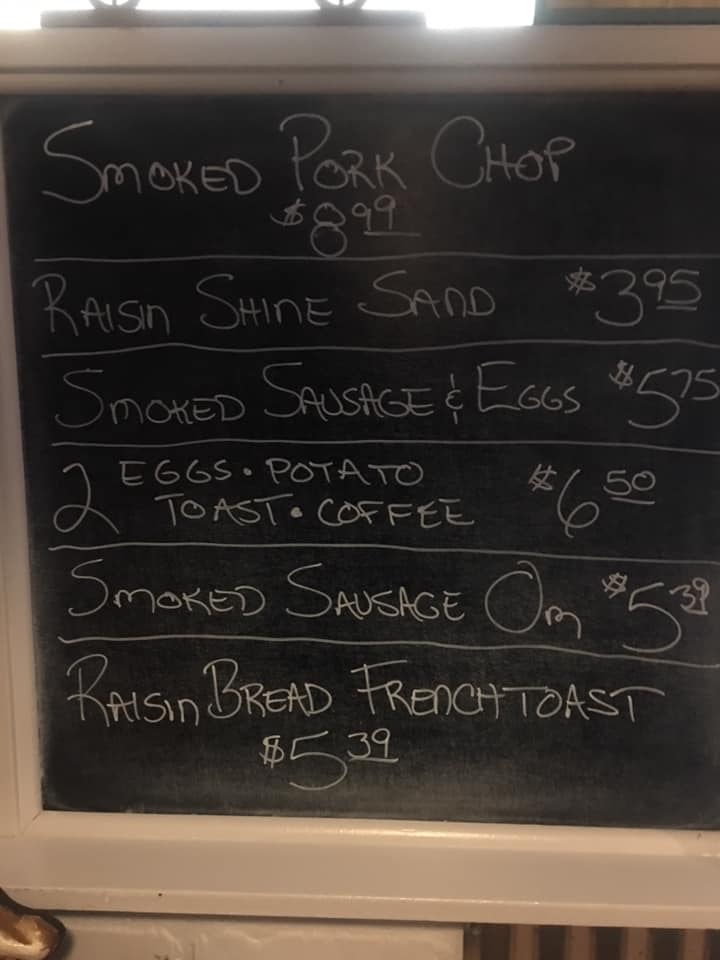 SMOKED PORK CHOP
$8.99
RAISIN SHINE SAND $3.95
SMOKED SAUSAGE & EGGS $5.75
2 EGGS • POTATO $6.50
TOAST • COFFEE
SMOKED SAUSAGE OM $5.39
RAISIN BREAD FRENCH TOAST
$5.39